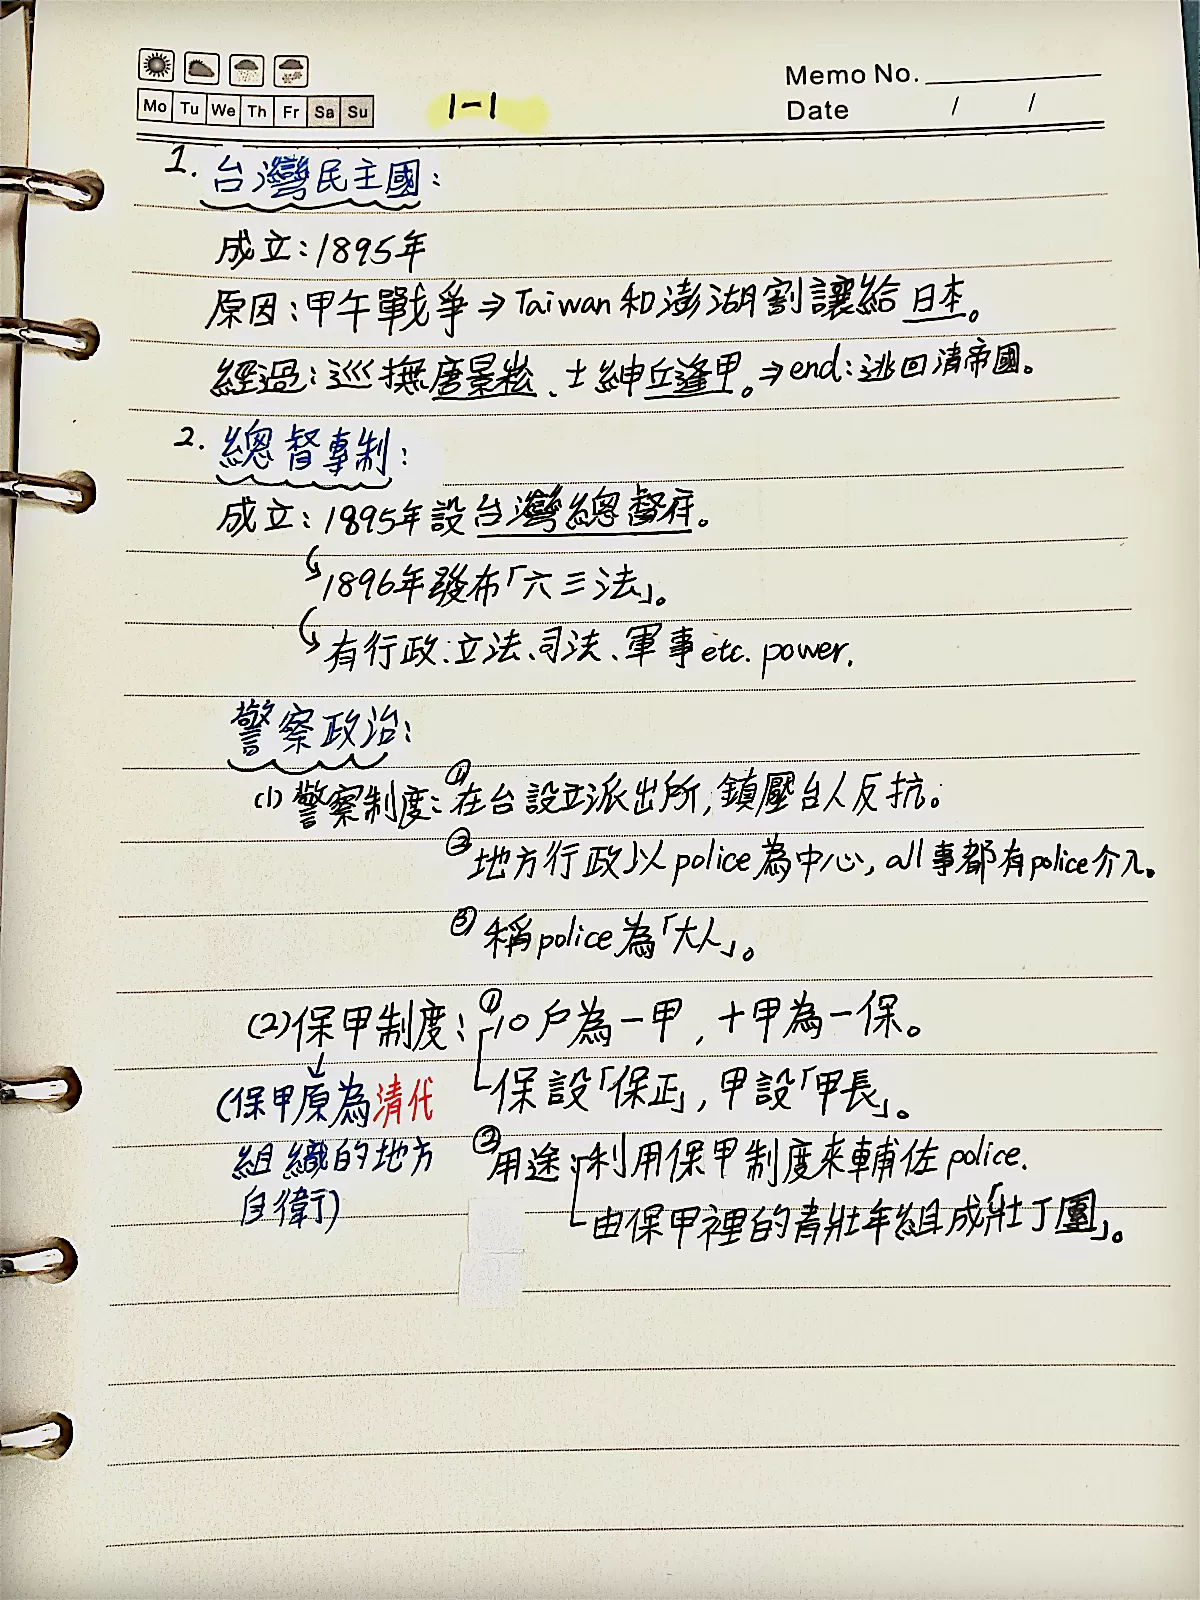 Memo No.
Mo Tu We Th Fr Sa Su
1-1
Date / /
1. 台灣民主國:
成立:1895年
原因:甲午戰爭⇒Taiwan和澎湖割讓給日本。
經過:巡撫唐景崧、士紳丘逢甲。⇒end:逃回清帝國。
2. 總督專制:
成立:1895年設台灣總督府。
↳1896年發布「六三法」。
↳有行政、立法、司法、軍事etc. power.
警察政治:
(1)警察制度:①在台設立派出所,鎮壓台人反抗。
②地方行政以police為中心,all事都有police介入。
③稱police為「大人」。
(2)保甲制度:①10戶為一甲,十甲為一保。
保設「保正」,甲設「甲長」。
↓
(保甲原為清代
組織的地方
自衛)
②用途:利用保甲制度來輔佐police.
由保甲裡的青壯年組成「壯丁團」。